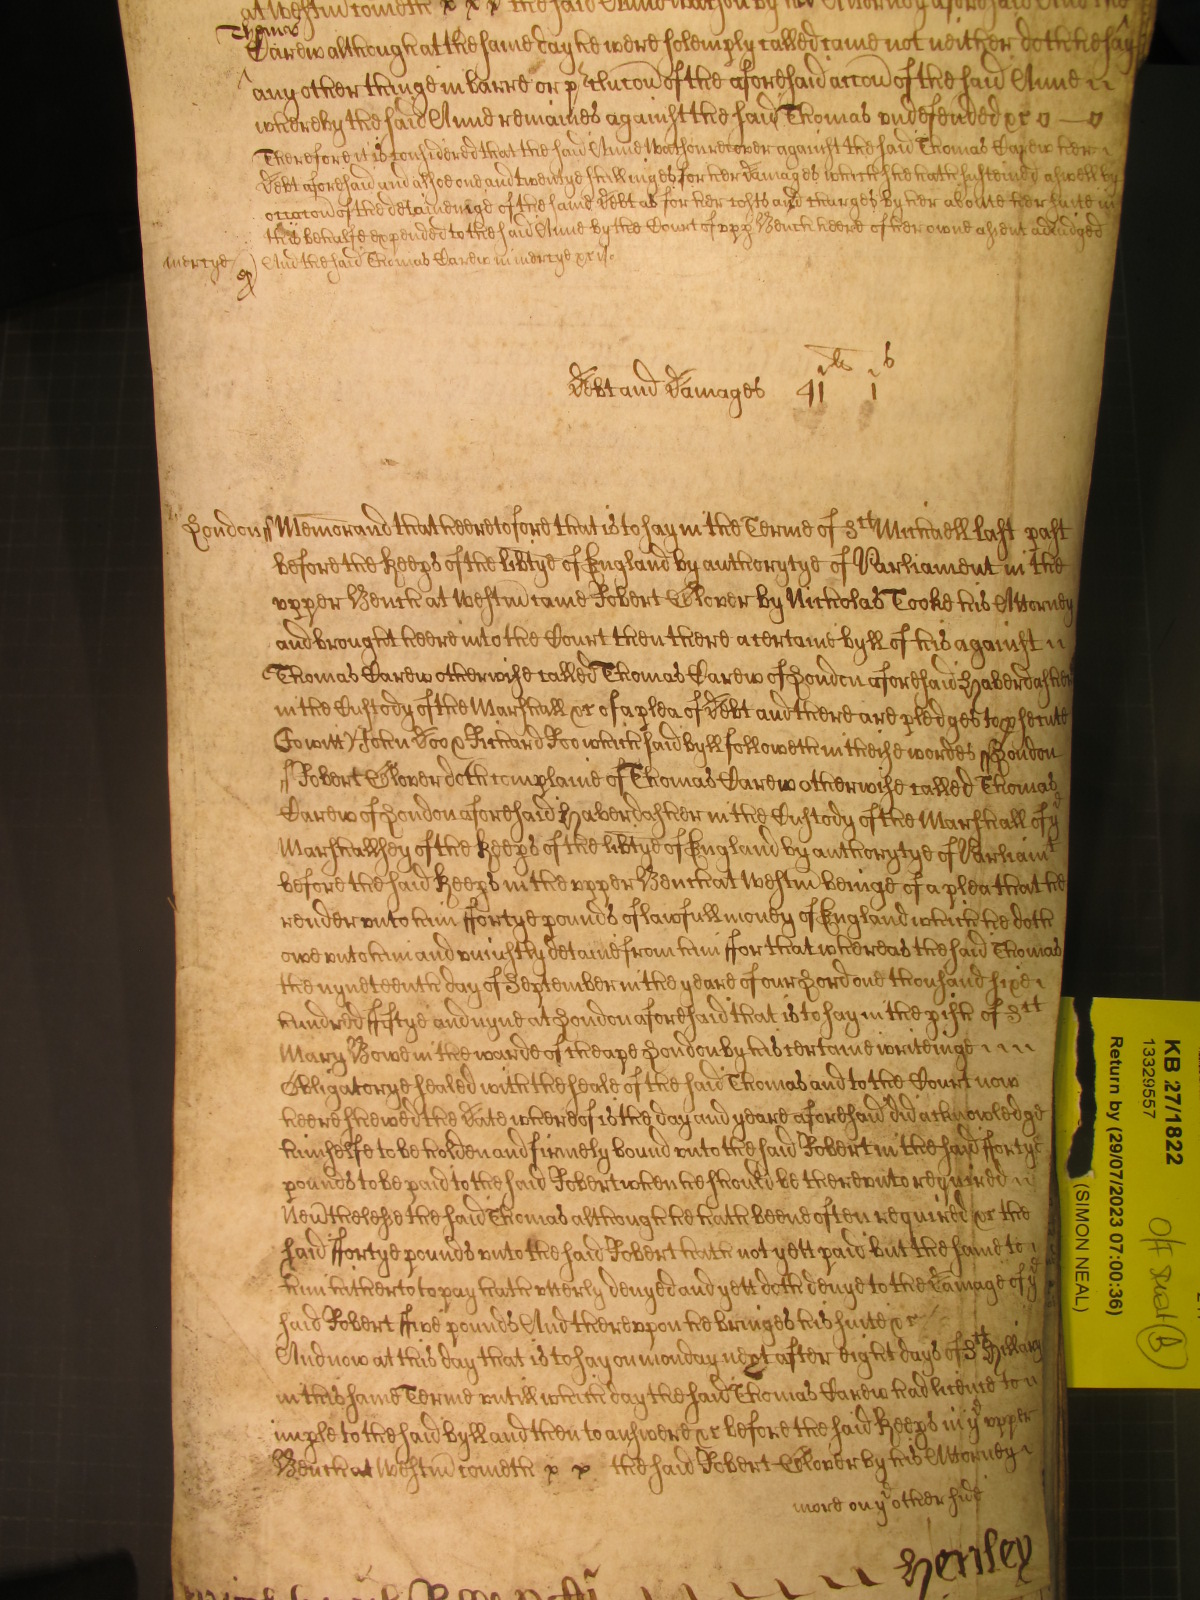 at Westm cometh the said Anne Watson by her Attorney aforesaid And the
Thomas
Carew although at the same day he were solemply called came not neither doth he say
any other thinge in barre or p'clucon of the aforesaid accon of the said Anne
whereby the said Anne remaines against the said Thomas undefended &c
Therefore it is considered that the said Anne Watson recover against the said Thomas Carew her
Debt aforesaid and alsoe one and twentye shillinges for her Damages which she hath susteined aswell by
occacon of the deteineinge of the same Debt as for her costs and charges by her aboute her suite in
this behalfe expended to the said Anne by the Court of upp Bench heere of her owne assent adiudged
mercye And the said Thomas Carew in mercye &c
Debt and Damages 41 1
London ss Memorand that heeretofore that is to say in the Terme of St Michaell last past
before the Keeps of the libtye of England by authorytye of Parliament in the
upper Bench at Westm came Robert Glover by Nicholas Tooke his Attorney
and brought heere into the Court then there a certaine byll of his against
Thomas Carew otherwise called Thomas Carew of London aforesaid Haberdasher
in the Custody of the Marshall &c of a plea of Debt and there are pledges to psecute
Towitt John Doo & Richard Roo which said byll followeth in theise wordes ss London
ss Robert Glover doth complaine of Thomas Carew otherwise called Thomas
Carew of London aforesaid Haberdasher in the Custody of the Marshall of ye
Marshallsey of the Keeps of the libtye of England by authorytye of Parliamt
before the said Keeps in the upper Bench at Westm beinge of a plea that he
render unto him ffortye pounds of lawfull money of England which he doth
owe unto him and uniustly detaine from him ffor that whereas the said Thomas
the nyneteenth day of September in the yeare of our Lord one thousand sixe
hundred ffiftye and nyne at London aforesaid that is to say in the pish of St
Mary Bowe in the warde of Cheape London by his certaine writeinge
Obligatorye sealed with the seale of the said Thomas and to the Court now
heere shewed the Date whereof is the day and yeare aforesaid did acknowledge
himselfe to be holden and firmely bound unto the said Robert in the said ffortye
pounds to be paid to the said Robert when he should be thereunto required
Nevthelesse the said Thomas although he hath beene often required &c the
said ffortye pounds unto the said Robert hath not yett paid but the same to
him hitherto to pay hath utterly denyed and yett doth denye to the Damage of ye
said Robert ffive pounds And thereupon he bringes his suite &c
And now at this day that is to say on monday next after eight days of St Hillary
in this same Terme untill which day the said Thomas Carew had licence to
imple to the said byll and then to answere &c before the said Keeps in ye upper
Bench at Westm cometh the said Robert Glover by his Attorney
more on ye other side
Henley
KB 27/1822
13329557
Return by (29/07/2023 07:00:36)
(SIMON NEAL)